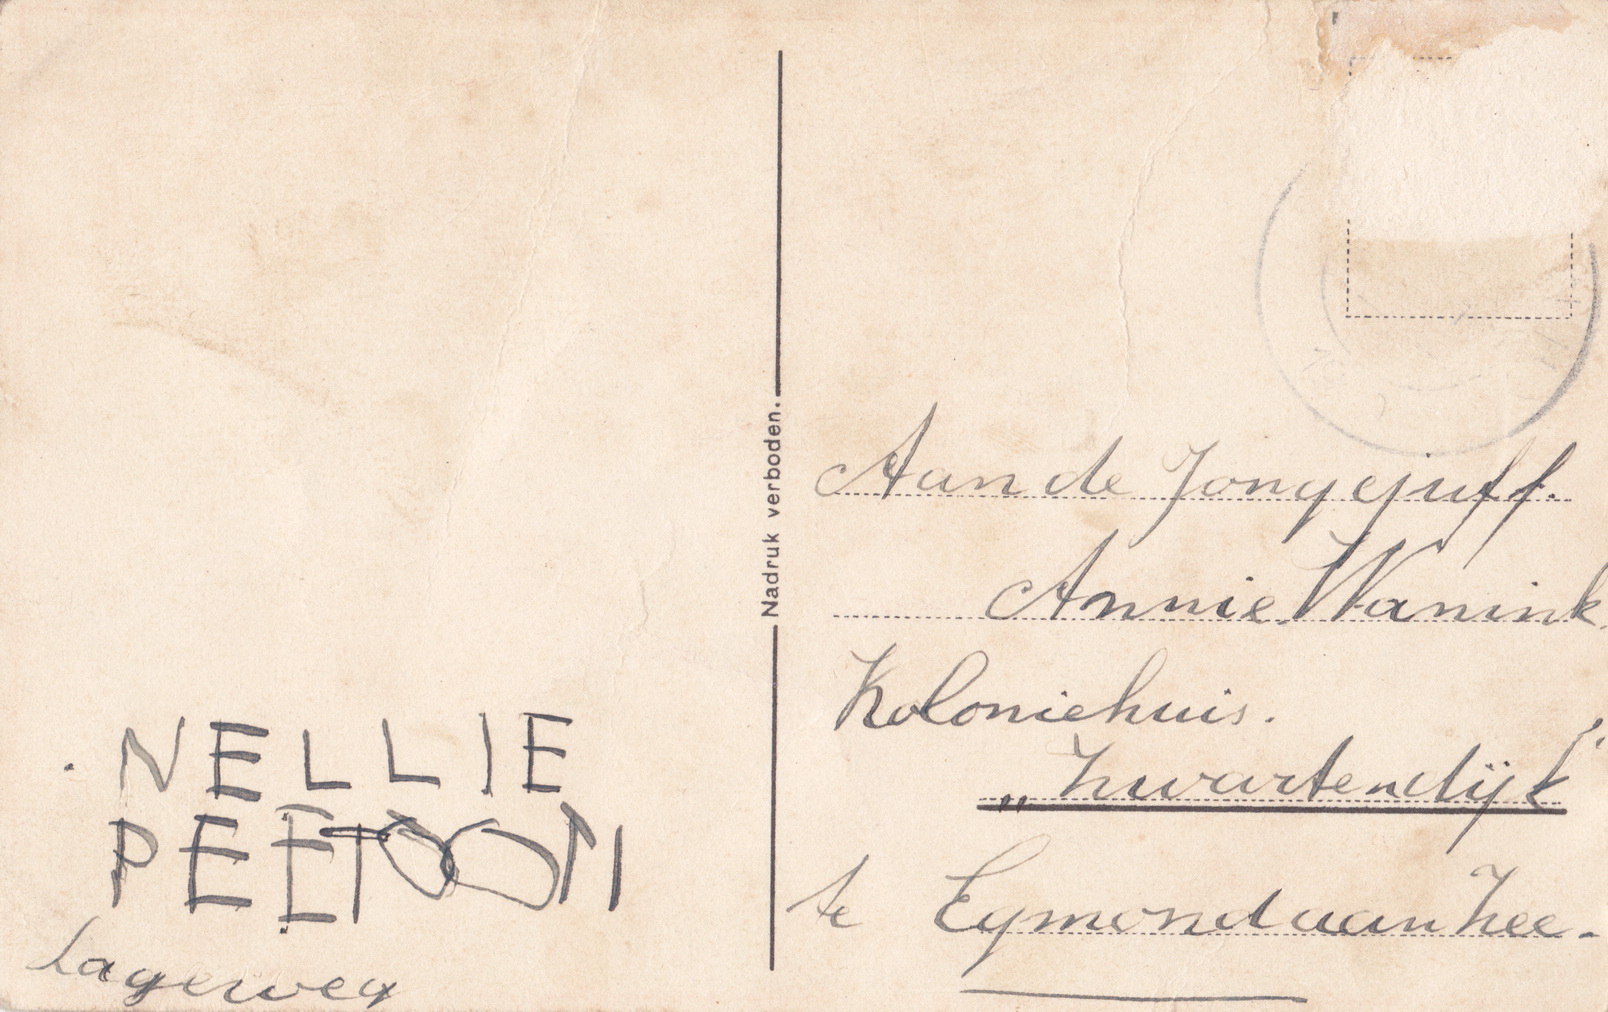 NELLIE
PEETOON
Lageweg
Nadruk verboden.
Aan de Jongejuff.
Annie Wanink
Koloniehuis.
„Zwartendijk"
te Egmond aan Zee.